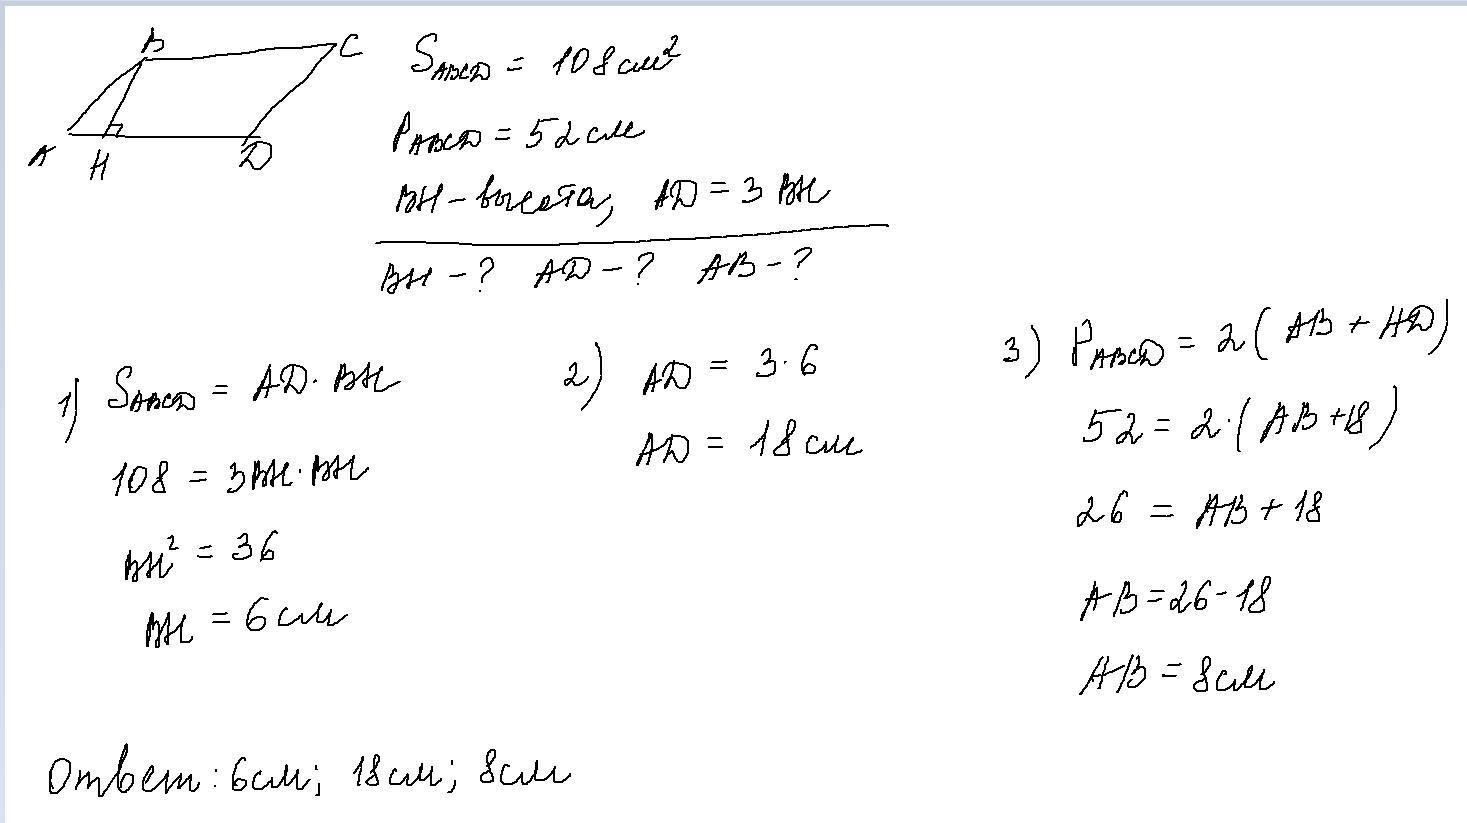 B C
A H D
S_ABCD = 108 см²
P_ABCD = 52 см
BH – высота, AD = 3 BH
BH – ? AD – ? AB – ?
1) S_ABCD = AD · BH
108 = 3BH · BH
BH² = 36
BH = 6 см
2) AD = 3 · 6
AD = 18 см
3) P_ABCD = 2 ( AB + AD)
52 = 2 · ( AB + 18 )
26 = AB + 18
AB = 26 - 18
AB = 8 см
Ответ: 6 см; 18 см; 8 см